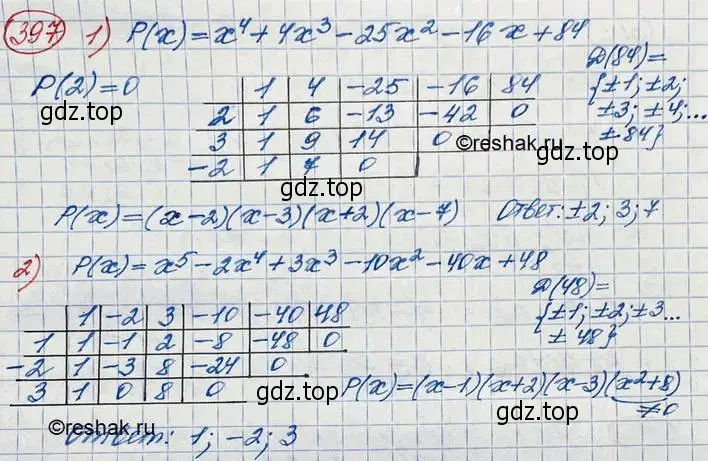 397 1) P(x)=x⁴+4x³-25x²-16x+84
P(2)=0
Д(84)=
{±1; ±2;
±3; ±4;...
± 84}
gdz.top
1 4 -25 -16 84
2 1 6 -13 -42 0
3 1 9 14 0
-2 1 7 0
©reshak.ru
gdz.top
gdz.top
P(x)=(x-2)(x-3)(x+2)(x-7) Ответ: ±2; 3; 7
2) P(x)=x⁵-2x⁴+3x³-10x²-40x+48
Д(48)=
{±1; ±2; ±3...
± 48}
1 -2 3 -10 -40 48
1 1 -1 2 -8 -48 0
-2 1 -3 8 -24 0
3 1 0 8 0
gdz.top
P(x)=(x-1)(x+2)(x-3)(x²+8)
≠0
gdz.top
©reshak.ru
Ответ: 1; -2; 3